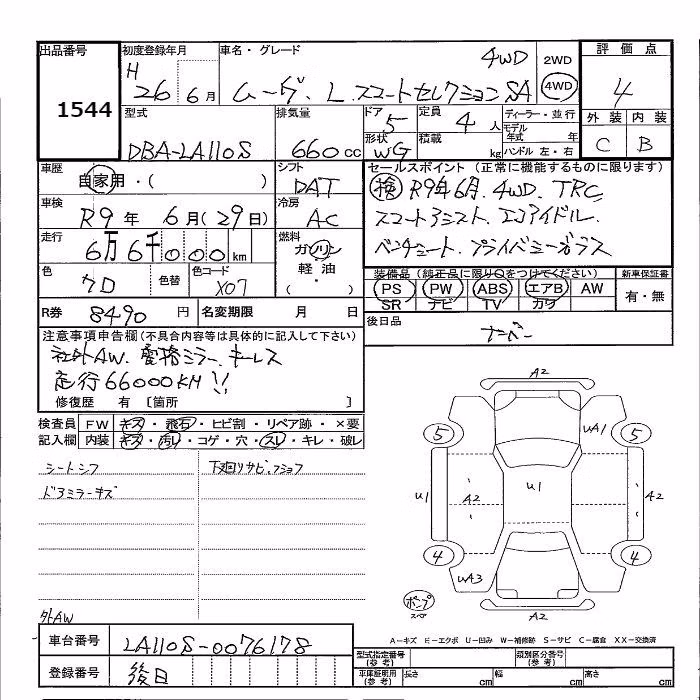 出品番号
1544
初度登録年月
H 26 6月
車名・グレード
4WD
ムーヴ. L. スマートセレクションSA
2WD
4WD
評価点
4
外装 内装
C B
型式
DBA-LA110S
排気量
660cc
ドア 5
形状 WG
定員 4 人
積載 kg
ディーラー・並行
モデル年式 年
ハンドル 左・右
車歴
自家用・( )
シフト
DAT
車検
R9年 6月(29日)
冷房
AC
走行
6万6千000km
燃料
ガソリン
軽油
・( )
色
クロ
色替
色コード
X07
R券 8490 円
名変期限 月 日
セールスポイント (正常に機能するものに限ります)
R9年6月. 4WD. TRC.
スマートアシスト. エコアイドル.
ベンチシート. プライバシーガラス
装備品 (純正品に限り○をつけてください)
新車保証書
PS PW ABS エアB AW
SR ナビ TV カワ
有・無
後日品
ナンバー
注意事項申告欄(不具合内容等は具体的に記入して下さい)
社外AW. 電格ミラー. キーレス
走行66000KM!!
修復歴 有 〔箇所 〕
検査員記入欄
FW キズ・飛石・ヒビ割・リペア跡・×要
内装 キズ・汚レ・コゲ・穴・スレ・キレ・破レ
シートシワ
下廻りサビ.
ドアミラーキズ
外AW
A2
5 5
UA1
U1 A2 U1 A2
4 4
UA3
A2
A-キズ E-エクボ U-凹み W-補修跡 S-サビ C-腐食 XX-交換済
車台番号
LA110S-0076178
登録番号
後日
型式指定番号(参考)
類別区分番号(参考)
車庫証明用(参考)
長さ cm 幅 cm 高さ cm